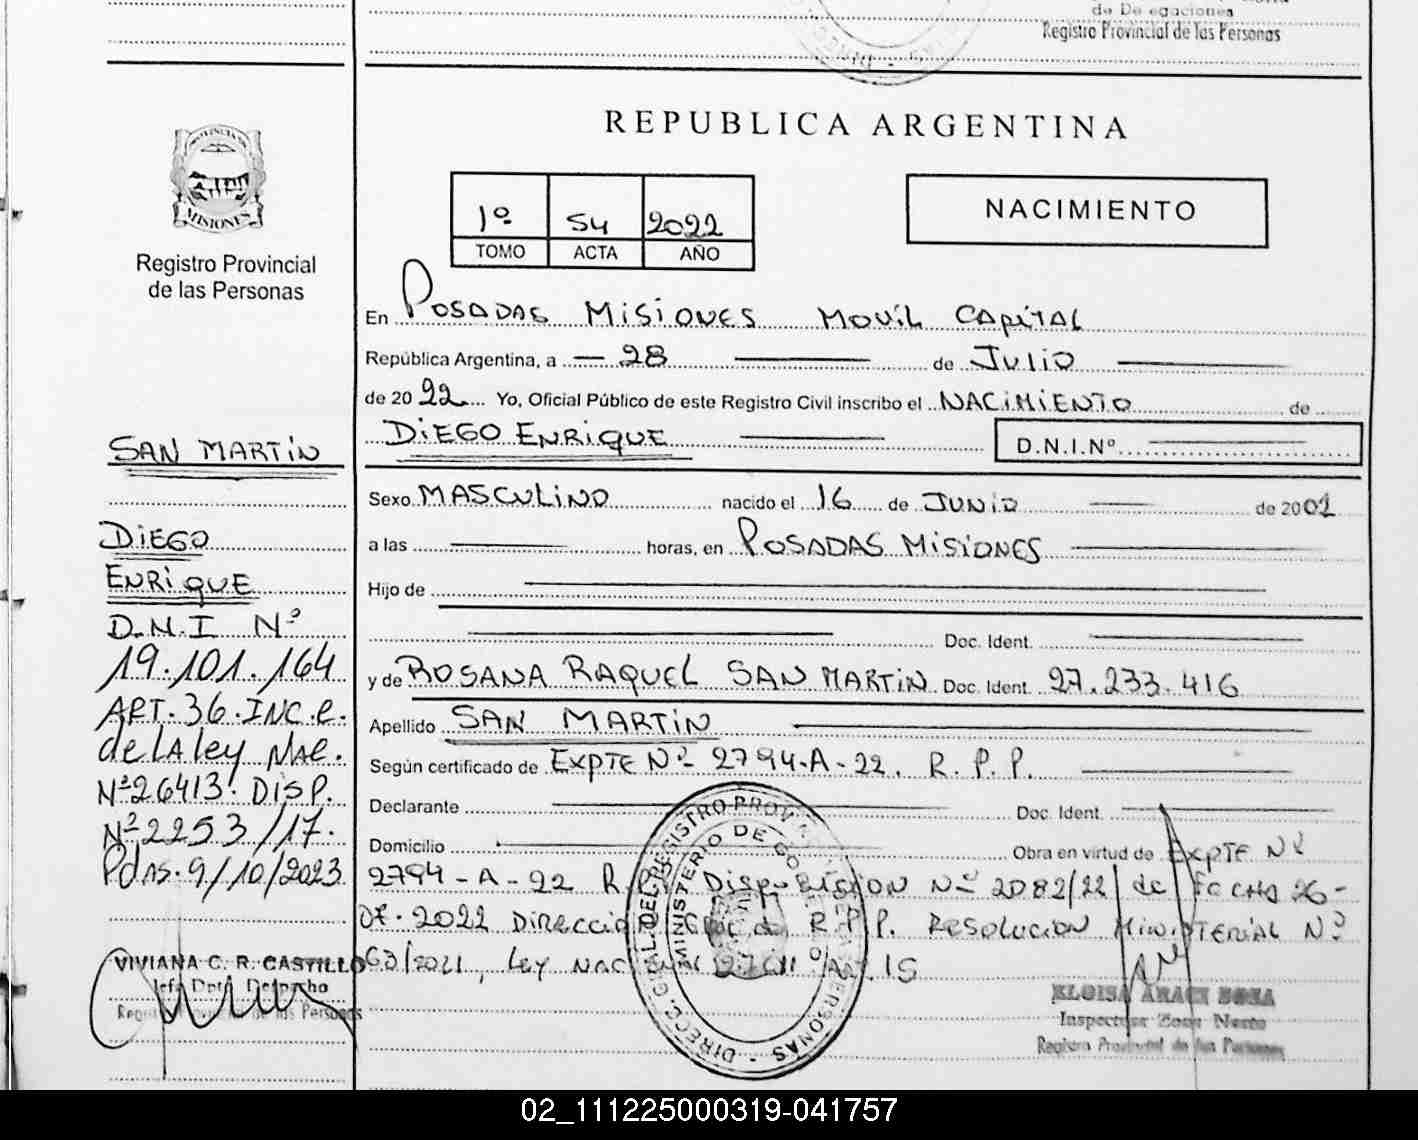 de Delegaciones
Registro Provincial de las Personas
PROVINCIA DE
MISIONES
Registro Provincial
de las Personas
REPUBLICA ARGENTINA
1º 54 2022
TOMO ACTA AÑO
NACIMIENTO
En POSADAS MISIONES MOVIL CAPITAL
República Argentina, a 28 de JULIO
de 2022 Yo, Oficial Público de este Registro Civil inscribo el NACIMIENTO de
DIEGO ENRIQUE D.N.I.Nº
Sexo MASCULINO nacido el 16 de JUNIO de 2002
a las horas, en POSADAS MISIONES
Hijo de
Doc. Ident.
y de ROSANA RAQUEL SAN MARTIN Doc. Ident. 27.233.416
Apellido SAN MARTIN
Según certificado de EXPTE Nº 2794-A-22. R.P.P.
Declarante Doc. Ident.
Domicilio Obra en virtud de EXPTE Nº
2794-A-22 R.P.P. DISPOSICION Nº 2082/22 de fecha 26-
07-2022 DIRECCION GRAL de R.P.P. RESOLUCION MINISTERIAL Nº
63/2021, Ley NACIONAL 27611 Art. 15
SAN MARTIN
DIEGO
ENRIQUE
D.N.I Nº
19.101.164
ART. 36. INC. e.
de LA ley NAC.
Nº 26413. DISP.
Nº 2253/17.
Pdas. 9/10/2023
VIVIANA C. R. CASTILLO
Jefa Dpto. Despacho
Registro Provincial de las Personas
DIREC. GRAL. DEL REGISTRO PROV. DE LAS PERSONAS
MINISTERIO DE GOBIERNO
Inspectora Zona
Registro Provincial de las Personas
02_111225000319-041757